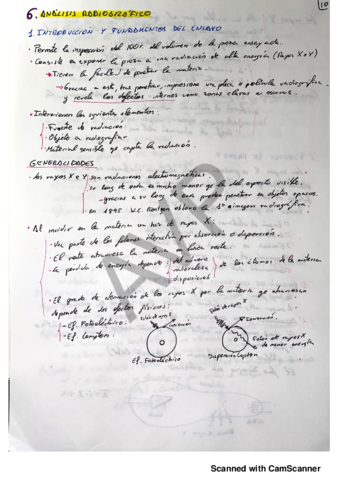 10
6. ANÁLISIS RADIOGRÁFICO
1. INTRODUCCIÓN Y FUNDAMENTOS DEL ENSAYO
· Permite la inspección del 100% del volumen de la pieza ensayada.
· Consiste en exponer la pieza a una radiación de alta energía (Rayos X o γ)
→ Tienen la facilidad de penetrar la materia.
· Gracias a este tras penetrar, impresiona una placa o película radiográfica
y revela los defectos internos como zonas claras u oscuras.
· Intervienen los siguientes elementos:
· Fuente de radiación
· Objeto a radiografiar
· Material sensible que capta la radiación.
GENERALIDADES
· Los rayos X e γ son radiaciones electromagnéticas:
su long de onda es mucho menor que la del espectro visible.
→ gracias a su long de onda pueden penetrar en objetos opacos.
en 1895 W.C. Röntgen obtuvo la 1ª imagen radiográfica.
· Al incidir en la materia un haz de rayos X:
· Una parte de los fotones interactúa por absorción o dispersión.
· El resto atraviesa la materia en línea recta
· la pérdida de energía depende:
del número
naturaleza
disposición
de los átomos de la materia
· El grado de atenuación de los rayos X por la materia que atraviesan
depende de dos efectos físicos:
- Ef. Fotoeléctrico
- Ef. Compton
Ef. Fotoeléctrico
Dispersión Compton
de menor energía
AVP
Scanned with CamScanner